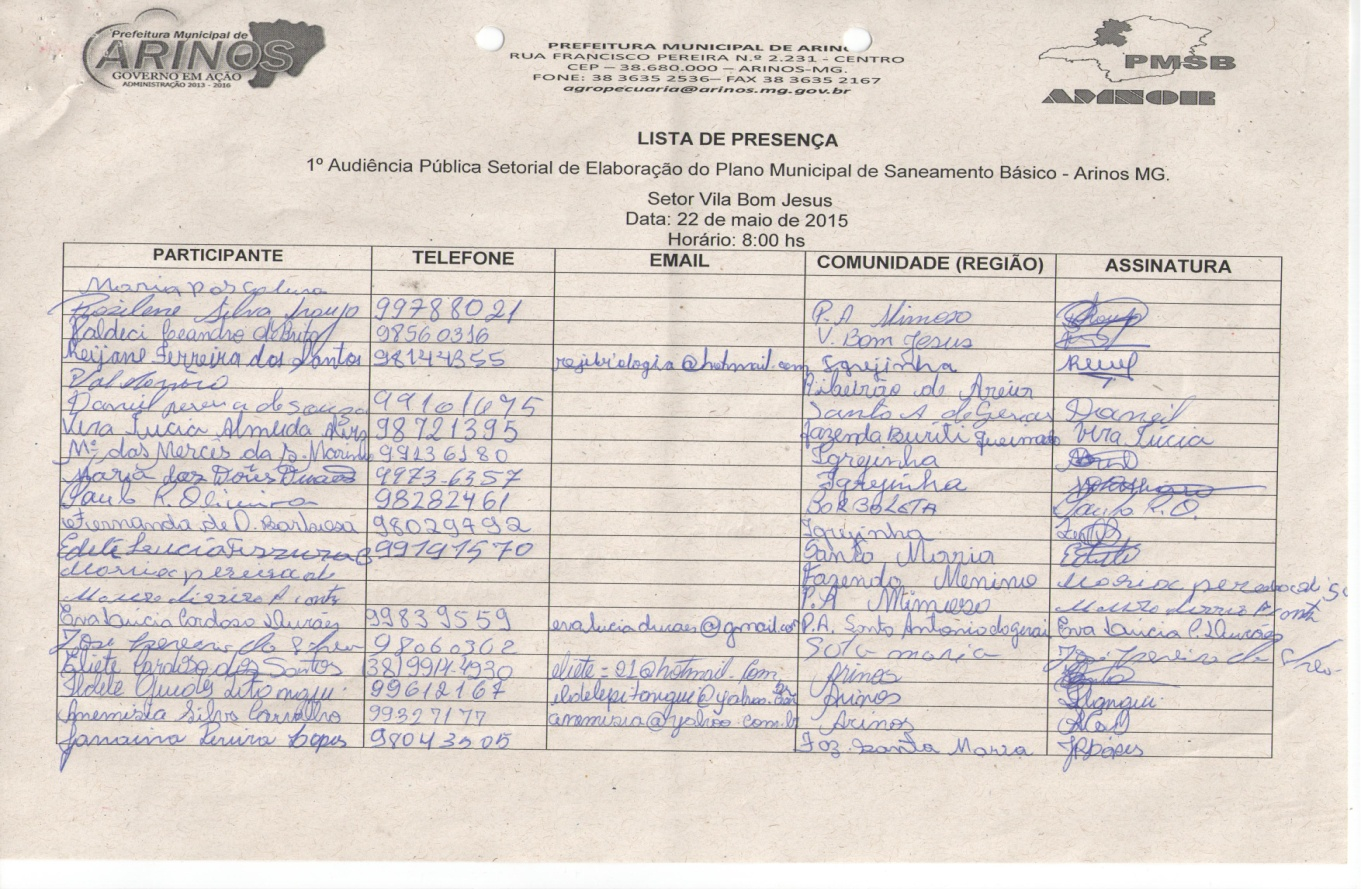 Prefeitura Municipal de
ARINOS
GOVERNO EM AÇÃO
ADMINISTRAÇÃO 2013 - 2016
PREFEITURA MUNICIPAL DE ARINO
RUA FRANCISCO PEREIRA N.º 2.231 - CENTRO
CEP – 38.680.000 – ARINOS-MG.
FONE: 38 3635 2536– FAX 38 3635 2167
agropecuaria@arinos.mg.gov.br
PMSB
AMNOR
LISTA DE PRESENÇA
1º Audiência Pública Setorial de Elaboração do Plano Municipal de Saneamento Básico - Arinos MG.
Setor Vila Bom Jesus
Data: 22 de maio de 2015
Horário: 8:00 hs
PARTICIPANTE TELEFONE EMAIL COMUNIDADE (REGIÃO) ASSINATURA
Maria
Rosilene Silva Araujo 99788021 P.A Mimoso
Valdeci Leandro de Brito 98560316 V. Bom Jesus
Reijane Ferreira dos Santos 98144355 rejibiologia@hotmail.com Igrejinha
Ribeirão de Areia
Daniel pereira de souza 99101675 Santo A de Gerais Daniel
Vera Lucia Almeida 98721395 fazenda Buriti queimado Vera Lucia
Mª das Mercês da S. Marinho 99136180 Igrejinha
Maria das Dôres Duraes 9973-6357 Igrejinha
Paulo R. Oliveira 98282461 BORBOLETA Paulo R.O.
Fernanda de O. Barbosa 98029492 Igrejinha
Edite Lucia 99191570 Santa Maria
Maria pereira de Fazenda Menino Maria
P.A Mimoso
Eva Lúcia Cardoso Durães 99839559 evalucia.duraes@gmail.co P.A. Santo Antonio do gerai Eva Lúcia C. Durães
José pereira da 98060302 Sata maria José pereira da
Eliete Cardoso dos Santos (38) 9914-4930 Arinos
Ildete Guides Pitangui 99612167 ildetepitangui@yahoo. Arinos
Anemisia Silva Carvalho 99327177 anemisia@yahoo.com.b Arinos
Janaina Pereira Lopes 98043505 Faz. Santa Maria JPLopes